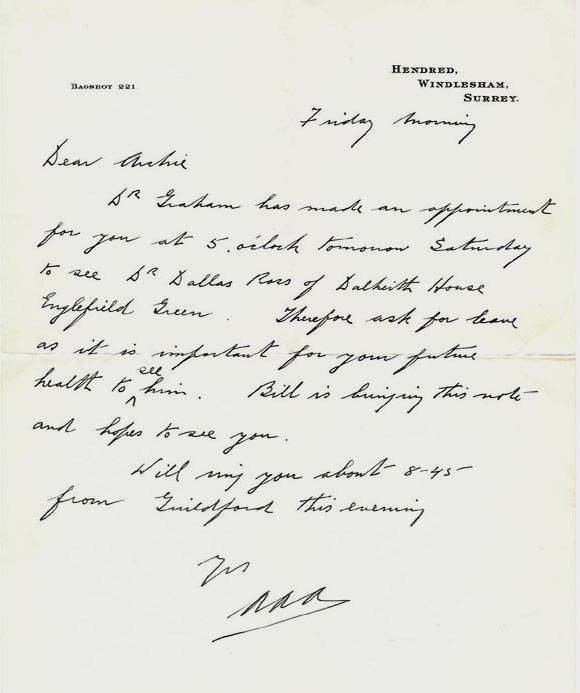 BAGSHOT 221.
HENDRED,
WINDLESHAM,
SURREY.
Friday Morning
Dear Archie
DR Graham has made an appointment
for you at 5. o'clock tomorrow Saturday
to see DR Dallas Ross of Dalkeith House
Englefield Green. Therefore ask for leave
as it is important for your future
see
health to him. Bill is bringing this note
and hopes to see you.
Will ring you about 8-45
from Guildford this evening
Yrs